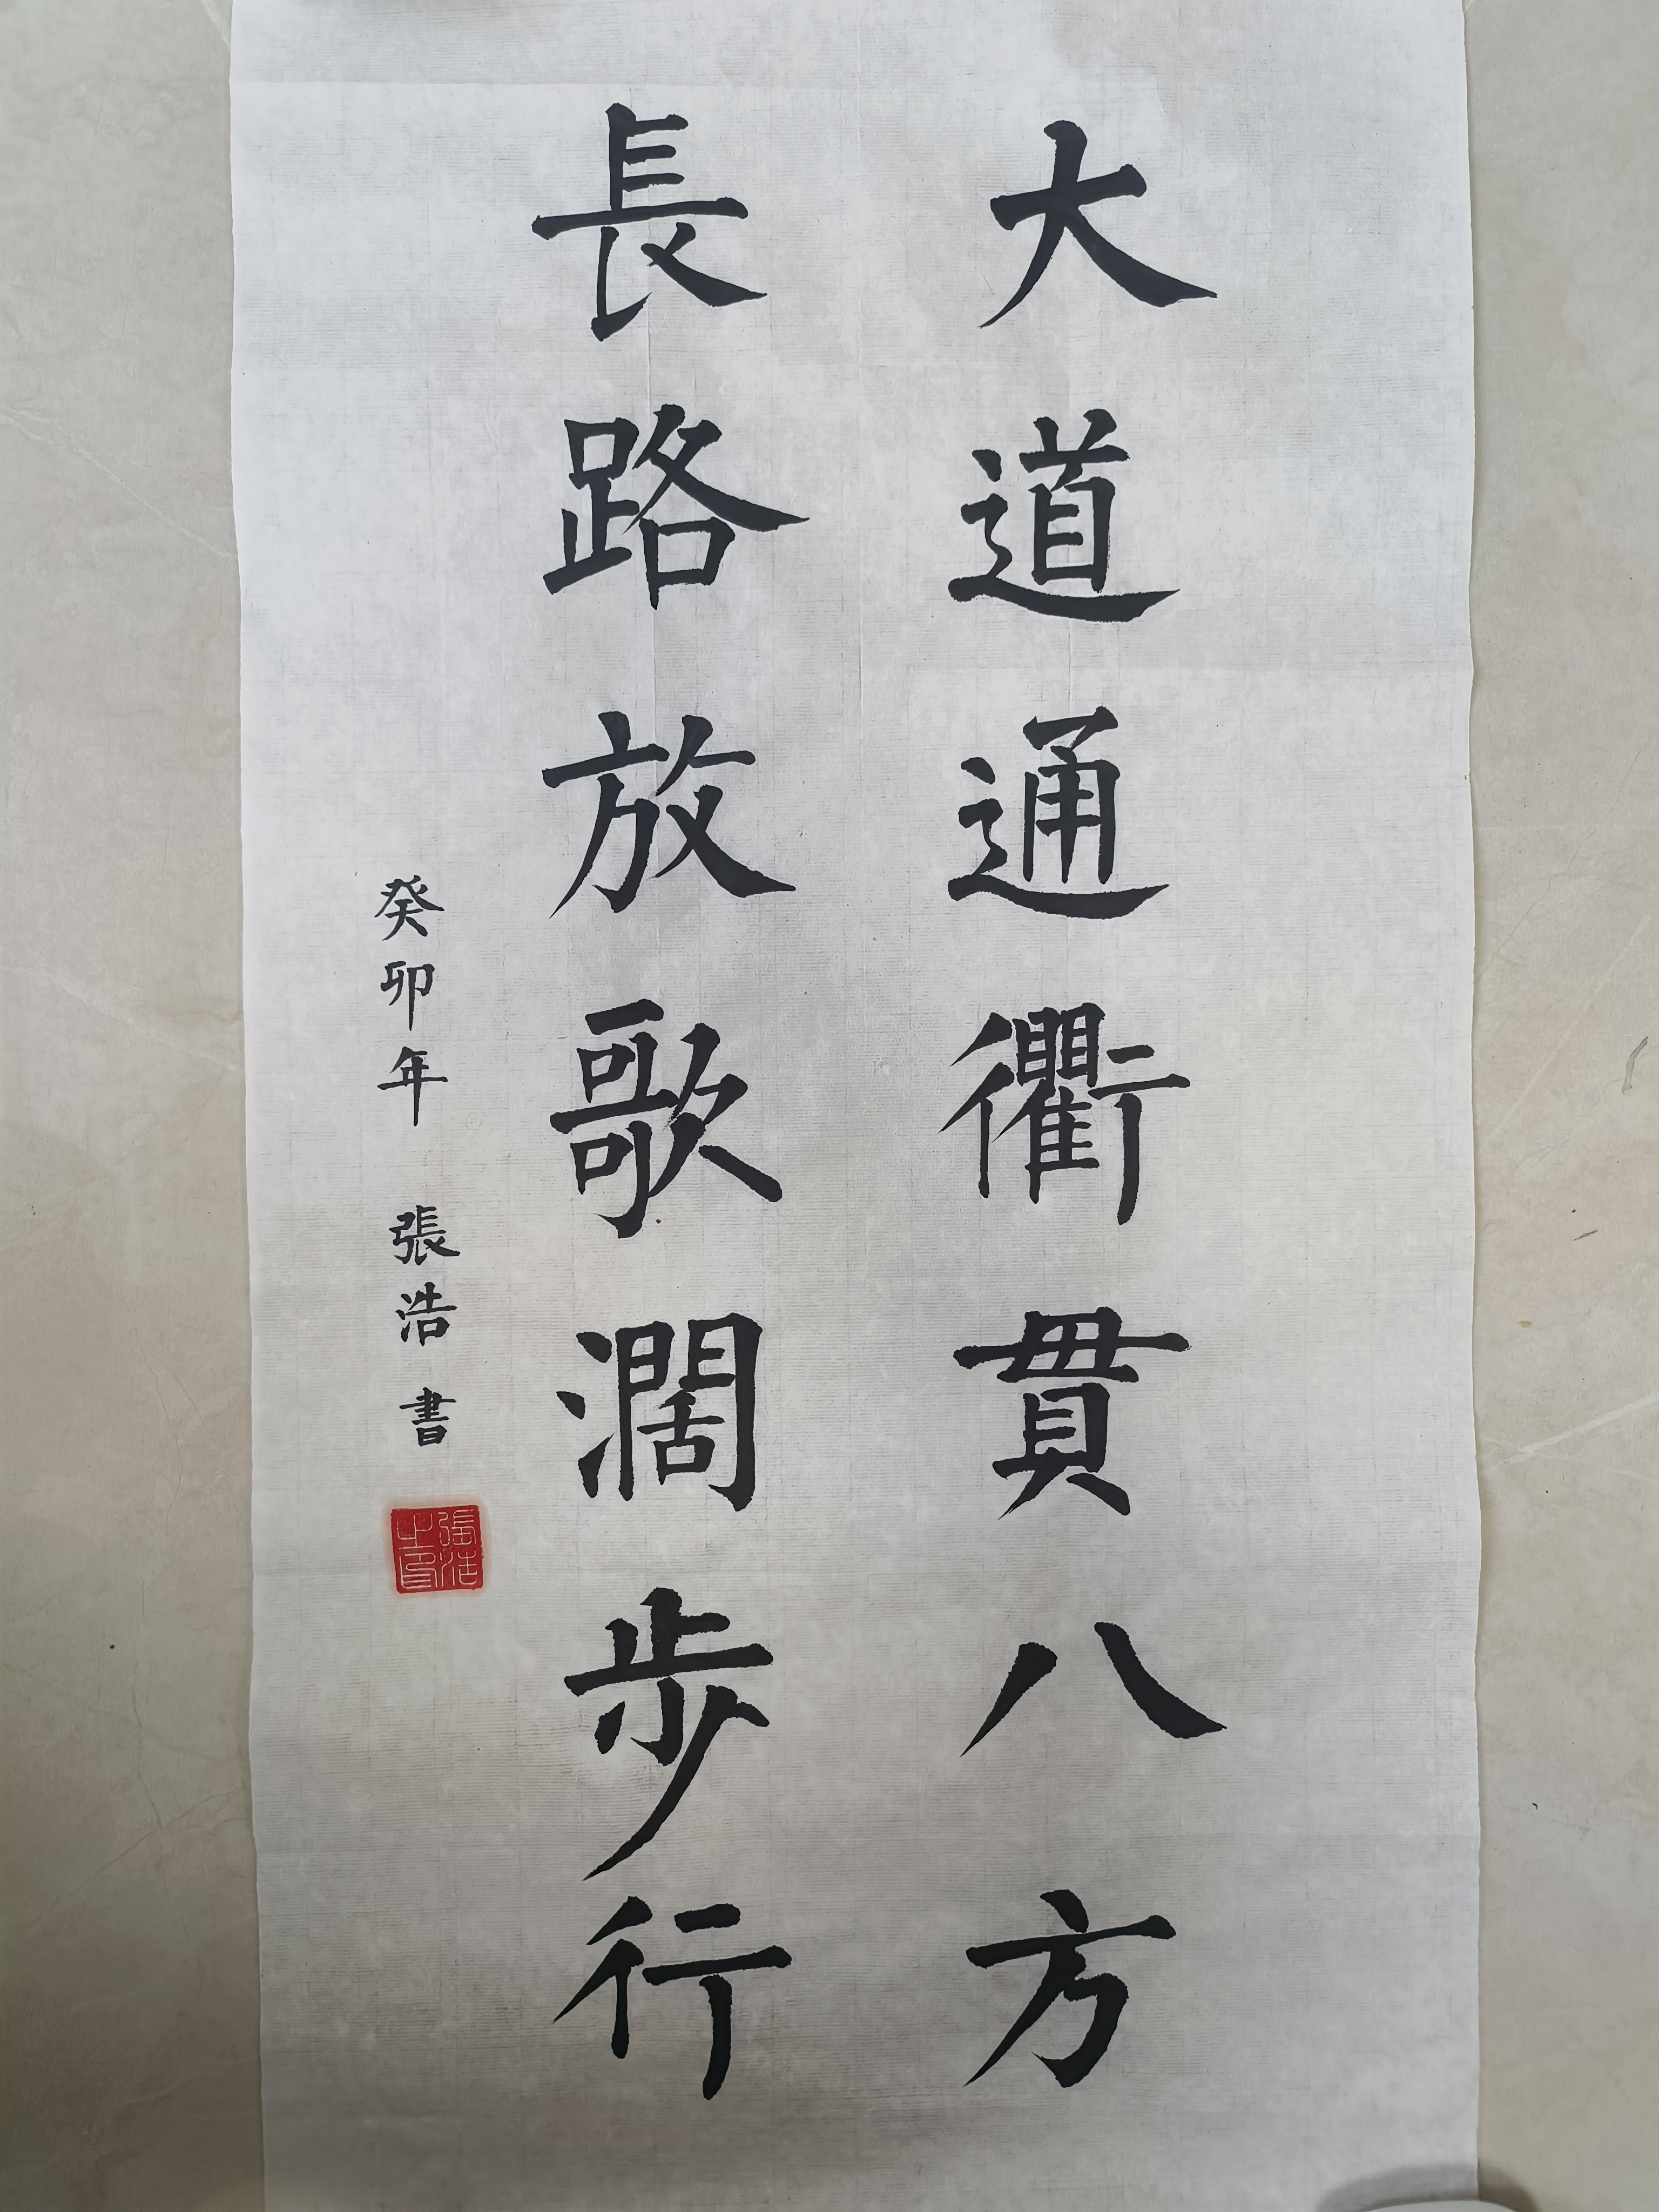 大道通衢貫八方
長路放歌濶步行
癸卯年 張浩書
張浩之印